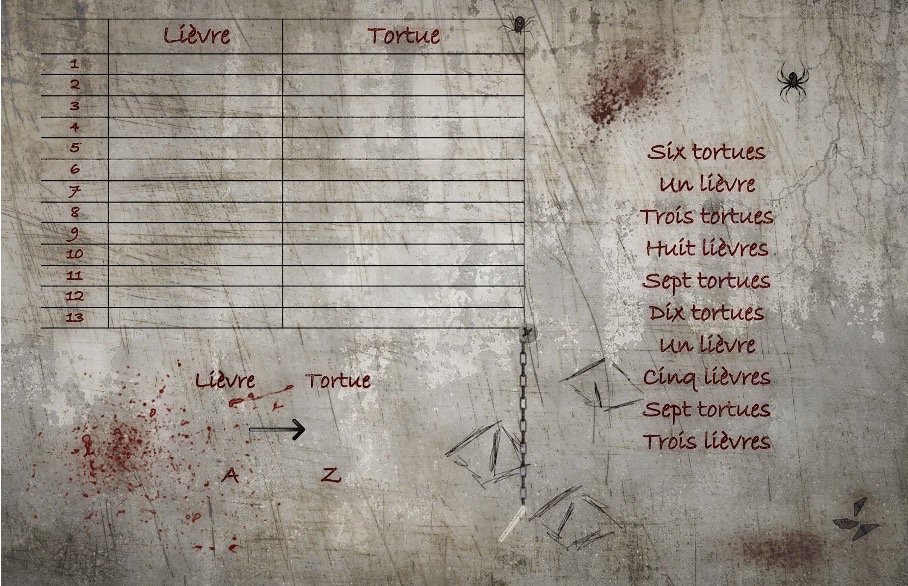 Lièvre Tortue
1
2
3
4
5
6
7
8
9
10
11
12
13
Six tortues
Un lièvre
Trois tortues
Huit lièvres
Sept tortues
Dix tortues
Un lièvre
Cinq lièvres
Sept tortues
Trois lièvres
Lièvre Tortue
A Z